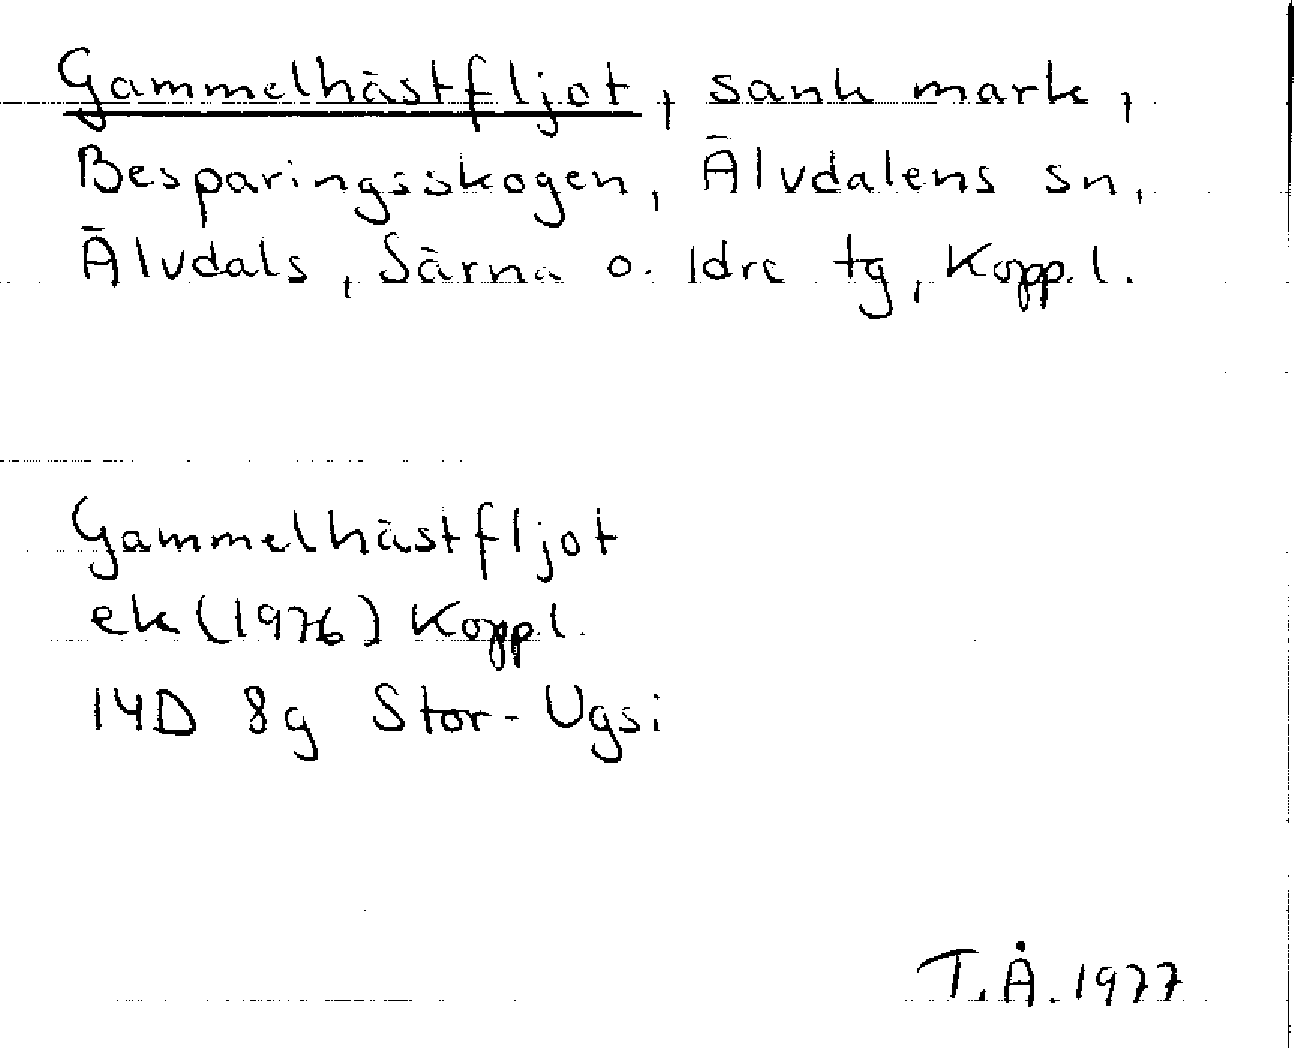 Gammelhästfljot, sank mark,
Besparingsskogen, Älvdalens sn,
Älvdals, Särna o. Idre tg, Kopp.l.
Gammelhästfljot
ek (1976) Kopp.l.
14D 8g Stor-Ugsi
T.Å.1977